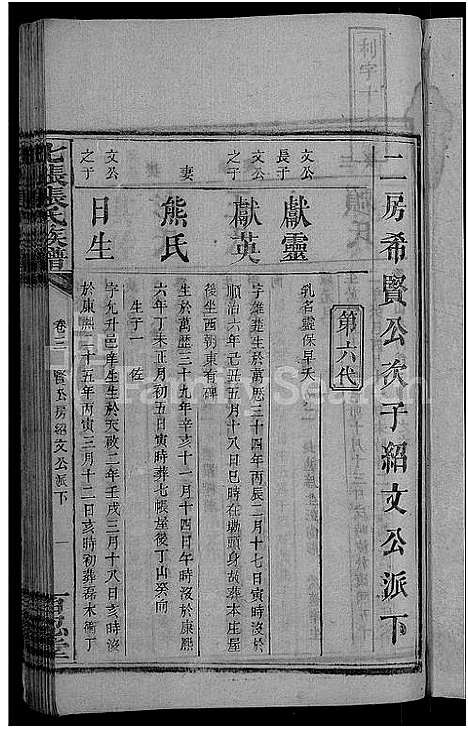 二房希賢公次子紹文公派下
第六代
文公長子
獻靈
乳名靈保早夭
文公之子
獻英
字雄楚生於萬歷三十四年丙辰二月十七日寅時沒於
順治六年己丑五月十八日巳時在塘頭身故葬本庄屋
後坐西朝東有碑
妻
熊氏
生於萬歷三十九年辛亥十一月十四日寅時沒於康熙
六年丁未正月初五日寅時葬七帳屋後丁山癸向
生子一 佐
文公之子
日生
字允升邑庠生生於天啟二年壬戌三月十八日亥時沒
於康熙二十五年丙寅三月十二日亥時初葬磊木衝丁
七張張氏族譜
卷二 賢公房紹文公派下
一
百忍堂
利字十
FamilySearch